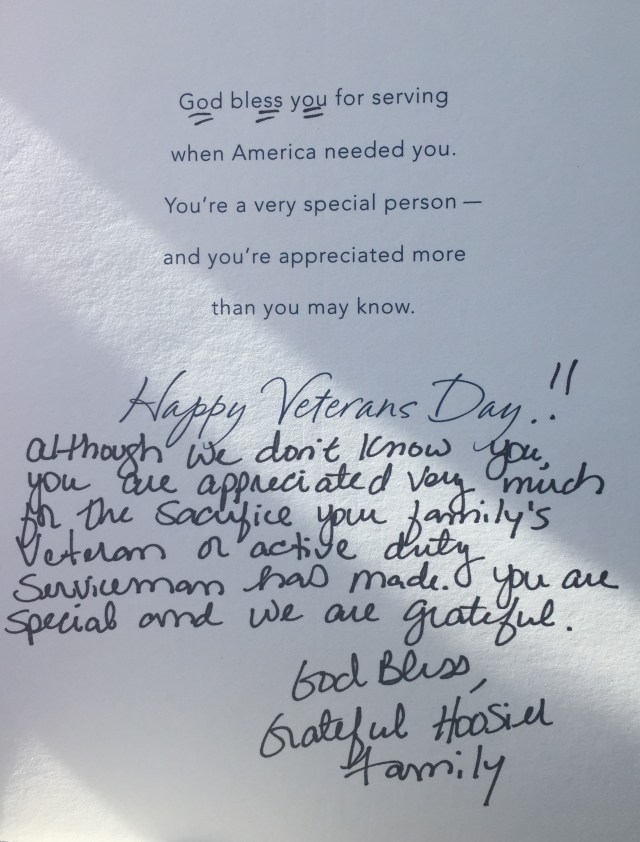 God bless you for serving
when America needed you.
You're a very special person—
and you're appreciated more
than you may know.
Happy Veterans Day.!!
although we don't know you,
you are appreciated very much
for the sacrifice your family's
Veteran or active duty
Serviceman has made. You are
special and we are grateful.
God Bless,
Grateful Hoosier
Family